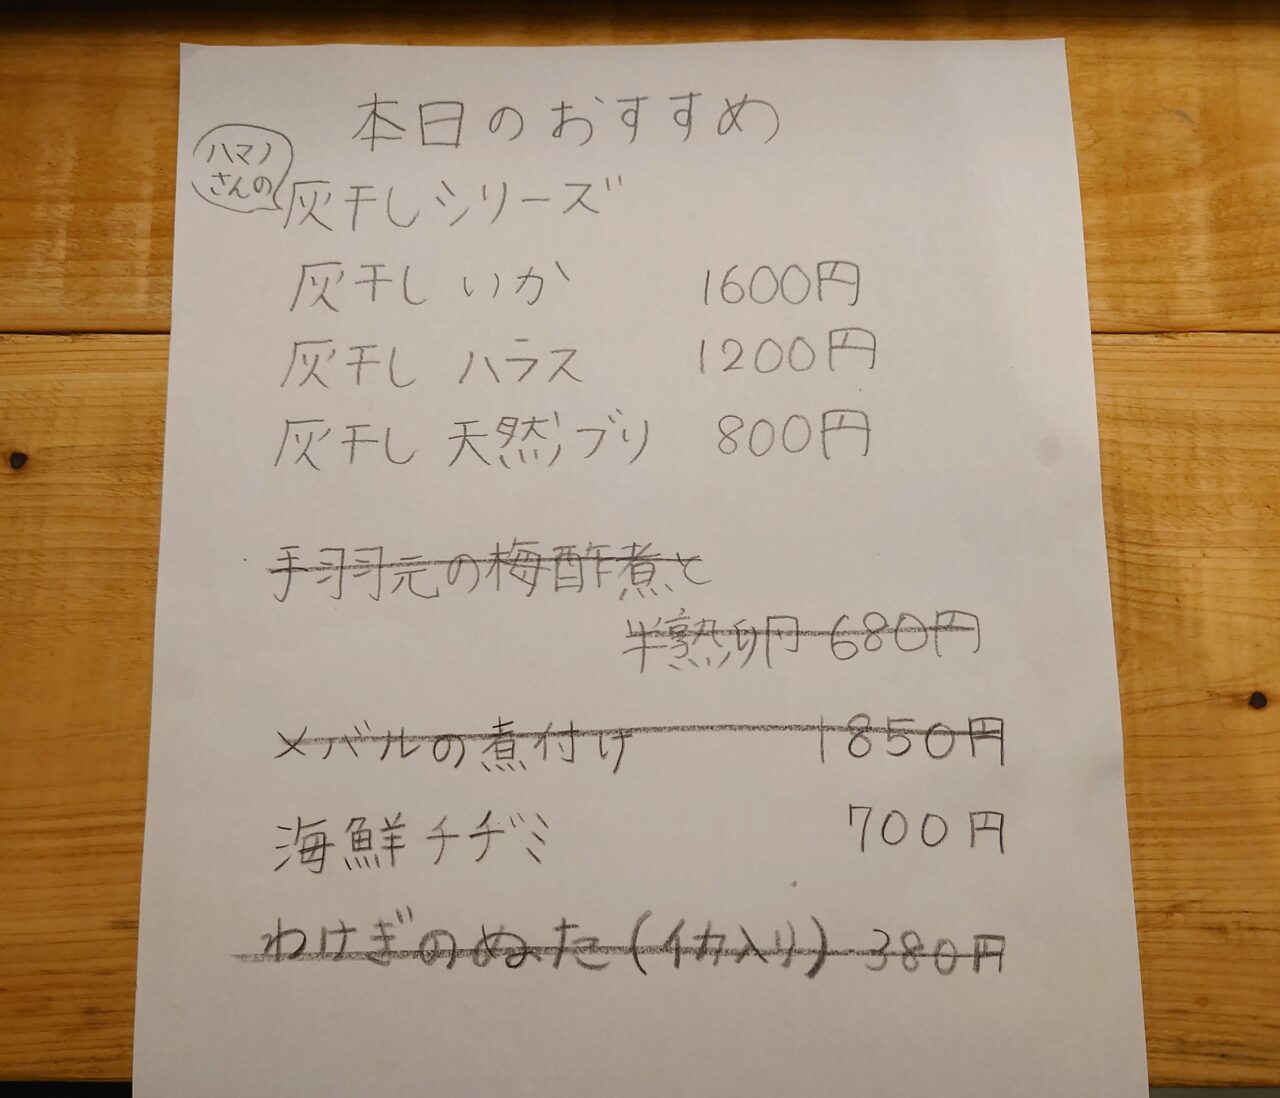 本日のおすすめ
ハマノ
さんの
灰干しシリーズ
灰干し いか 1600円
灰干し ハラス 1200円
灰干し 天然ブリ 800円
手羽元の梅酢煮と
半熟卵 680円
メバルの煮付け 1850円
海鮮チヂミ 700円
わけぎのぬた(イカ入り) 380円